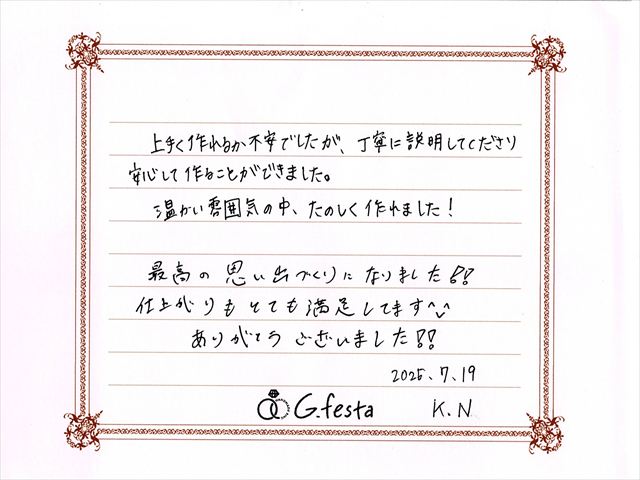 上手く作れるか不安でしたが、丁寧に説明してくださり
安心して作ることができました。
温かい雰囲気の中、たのしく作れました！
最高の思い出づくりになりました!!
仕上がりもとても満足してます^^
ありがとうございました!!
2025.7.19
G.festa K.N